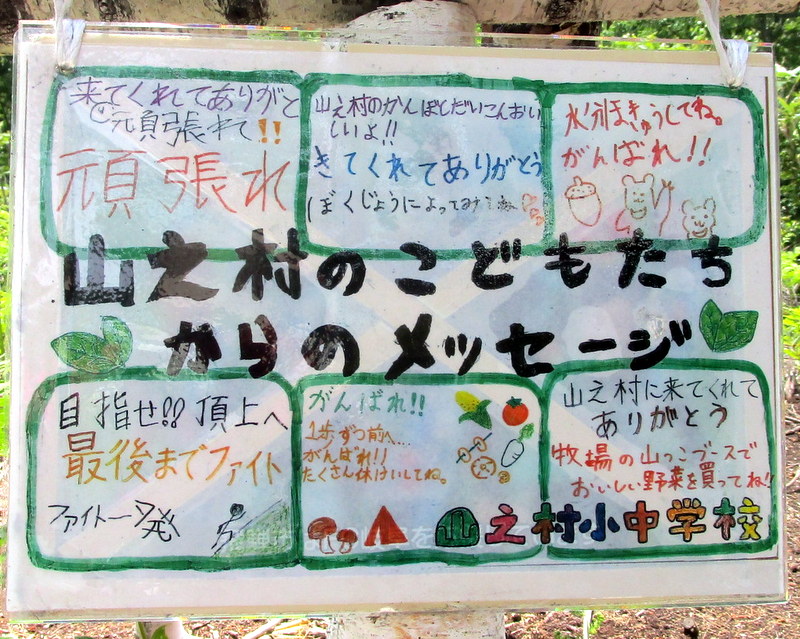 来てくれてありがと
う元頁張れて!!
頑張れ
山之村のかんぼしだいこんおい
しいよ!!
きてくれてありがとう
ぼくじょうによってみてね
水分ほきゅうしてね。
がんばれ!!
山之村のこどもたち
からのメッセージ
目指せ!!頂上へ
最後までファイト
ファイト一発
がんばれ!!
1歩ずつ前へ…
がんばれ!!
たくさん休けいしてね。
山之村に来てくれて
ありがとう
牧場の山っこブースで
おいしい野菜を買ってね!!
山之村小中学校